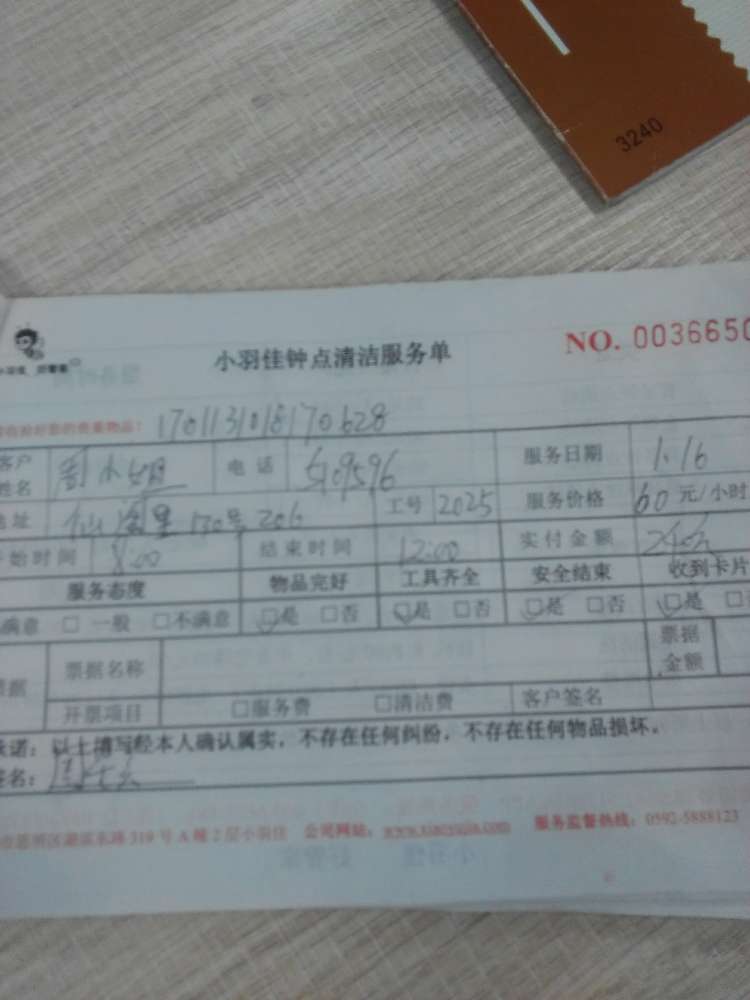 3240
小羽佳钟点清洁服务单
NO. 0036650
1701131018170628
客户姓名 周小姐 电话 5109596 服务日期 1.16
地址 仙阁里130号206 工号 2025 服务价格 60元/小时
开始时间 8:00 结束时间 12:00 实付金额
服务态度 物品完好 工具齐全 安全结束 收到卡片
满意 □ 一般 □不满意 □是 □否 □是 □否 □是 □否 □是
票据名称 票据金额
开票项目 □服务费 □清洁费 客户签名
承诺：以上填写经本人确认属实，不存在任何纠纷，不存在任何物品损坏。
签名：
市思明区湖滨东路319号A幢2层小羽佳 公司网站：www.xiaoyujia.com 服务监督热线：0592-5888123